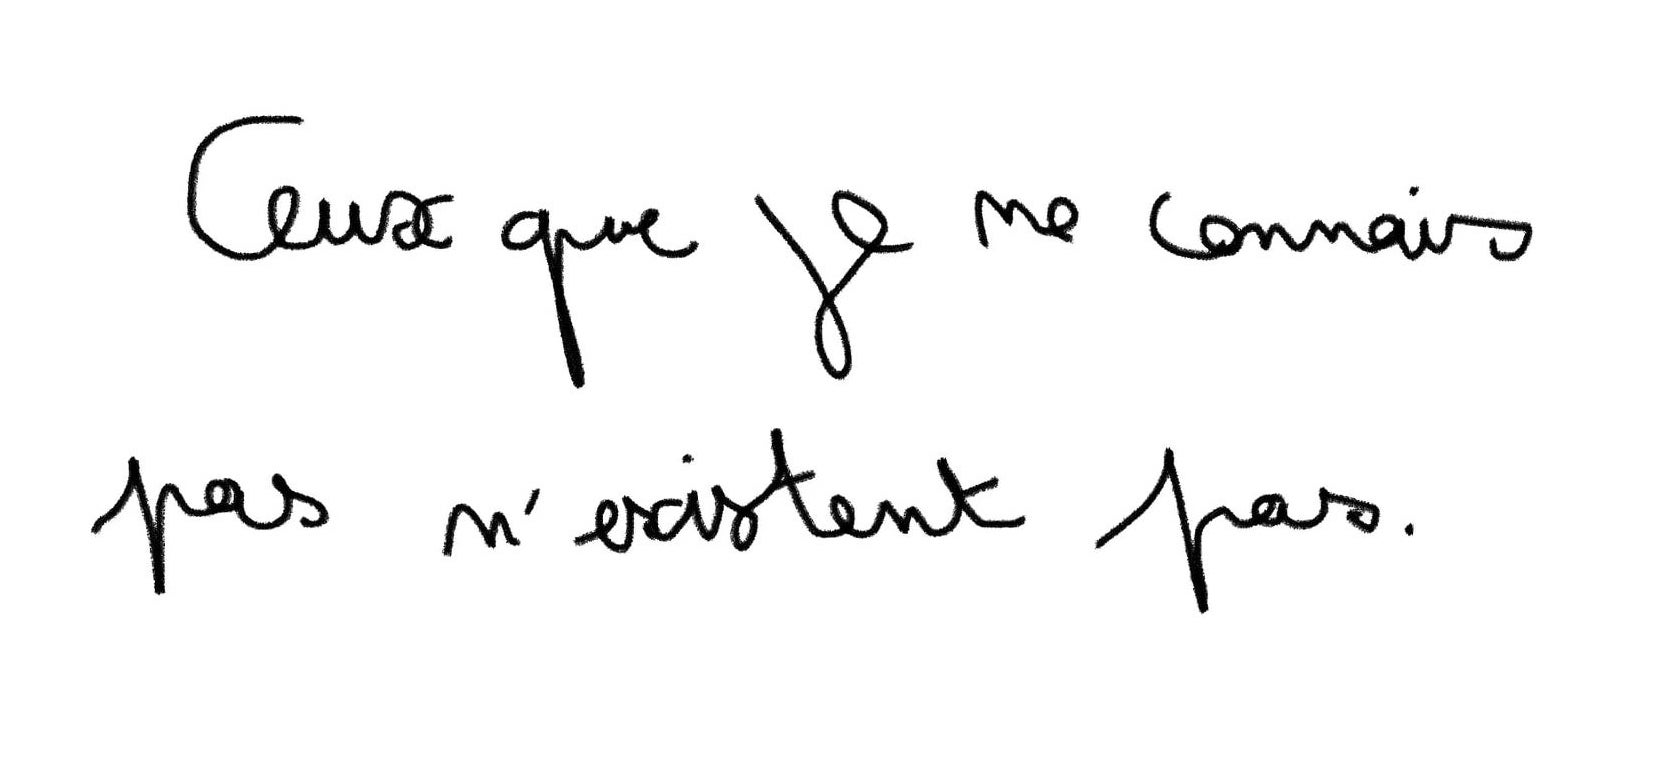 Ceux que je ne connais
pas n'existent pas.